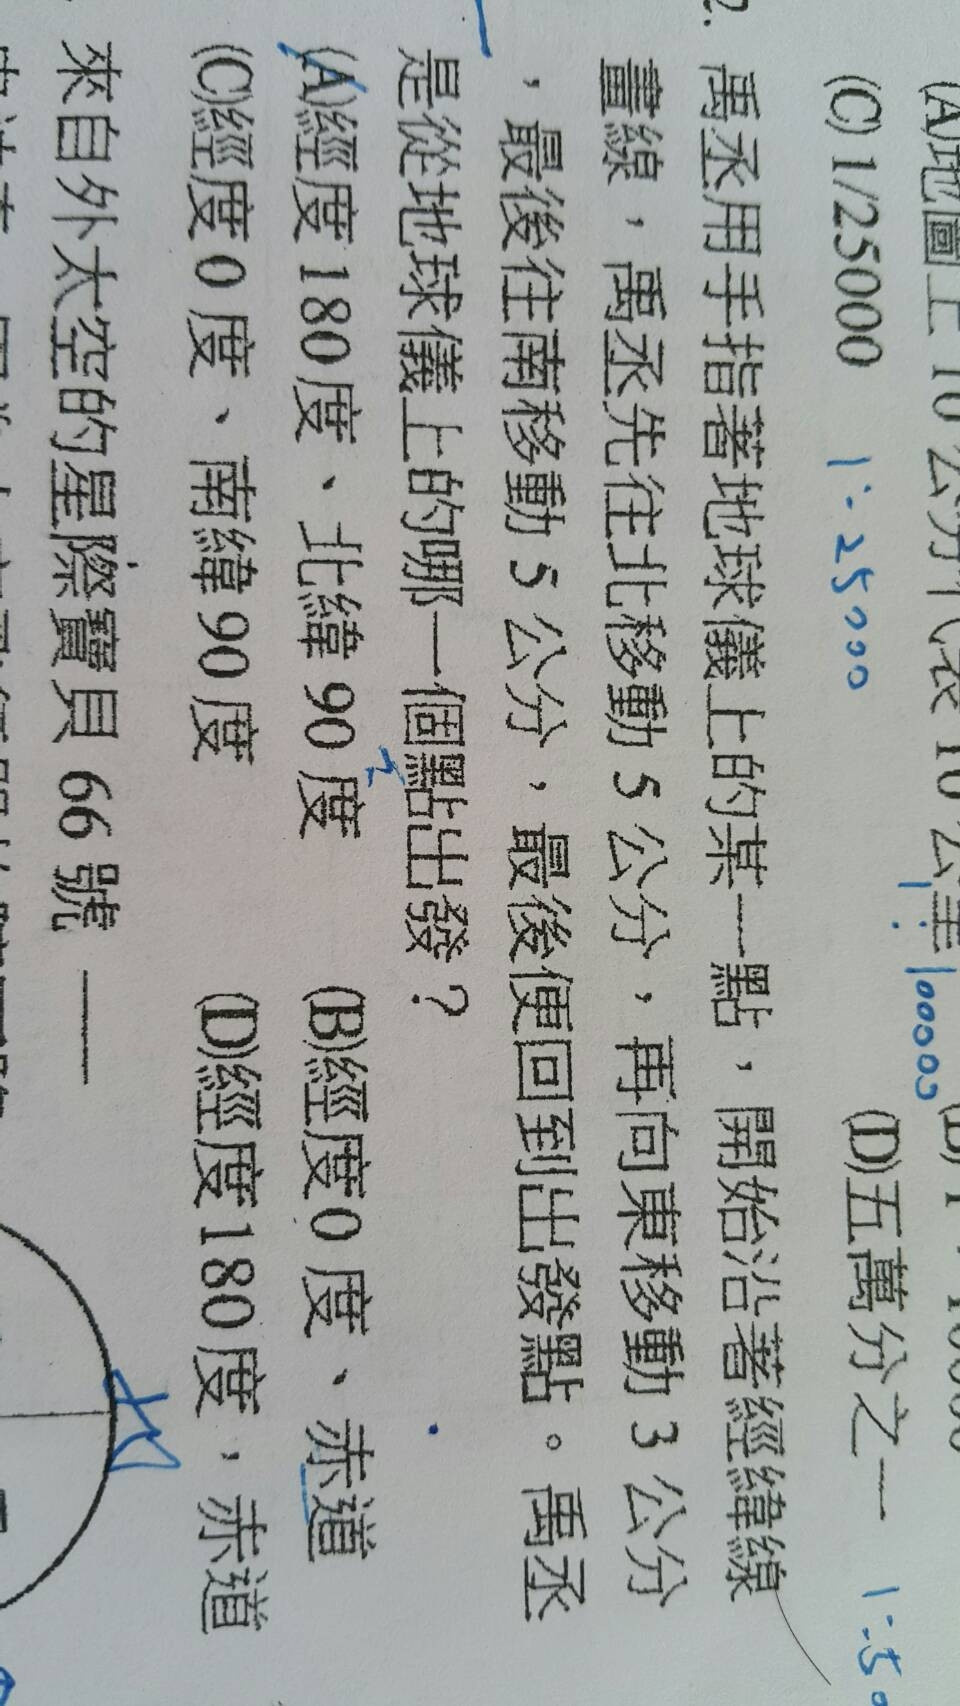 (A)地圖上 10 公分代表 10 公里
1:100000
(C) 1/25000
1:25000
(D)五萬分之一
2. 禹丞用手指著地球儀上的某一點，開始沿著經緯線
畫線，禹丞先往北移動 5 公分，再向東移動 3 公分
，最後往南移動 5 公分，最後便回到出發點。禹丞
是從地球儀上的哪一個點出發？
(A)經度 180 度、北緯 90 度
(B)經度 0 度、赤道
(C)經度 0 度、南緯 90 度
(D)經度 180 度，赤道
來自外太空的星際寶貝 66 號